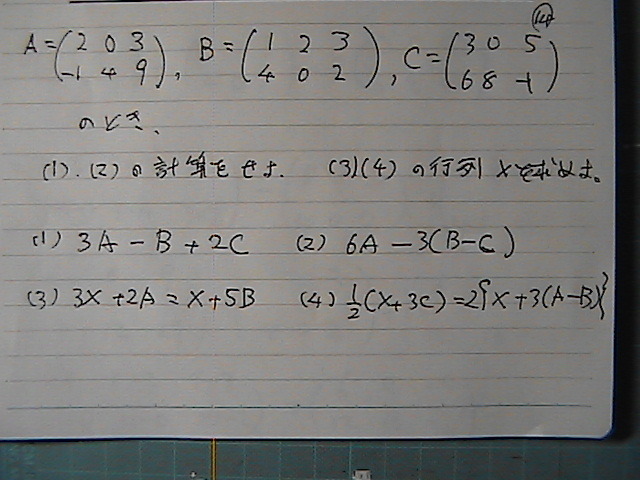 A = (2 0 3
-1 4 9), B = (1 2 3
4 0 2), C = (3 0 5
6 8 -1)
のとき、
(1).(2)の計算をせよ. (3)(4)の行列Xを求めよ。
(1) 3A - B + 2C (2) 6A - 3(B-C)
(3) 3X + 2A = X + 5B (4) 1/2(X+3C) = 2{X+3(A-B)}